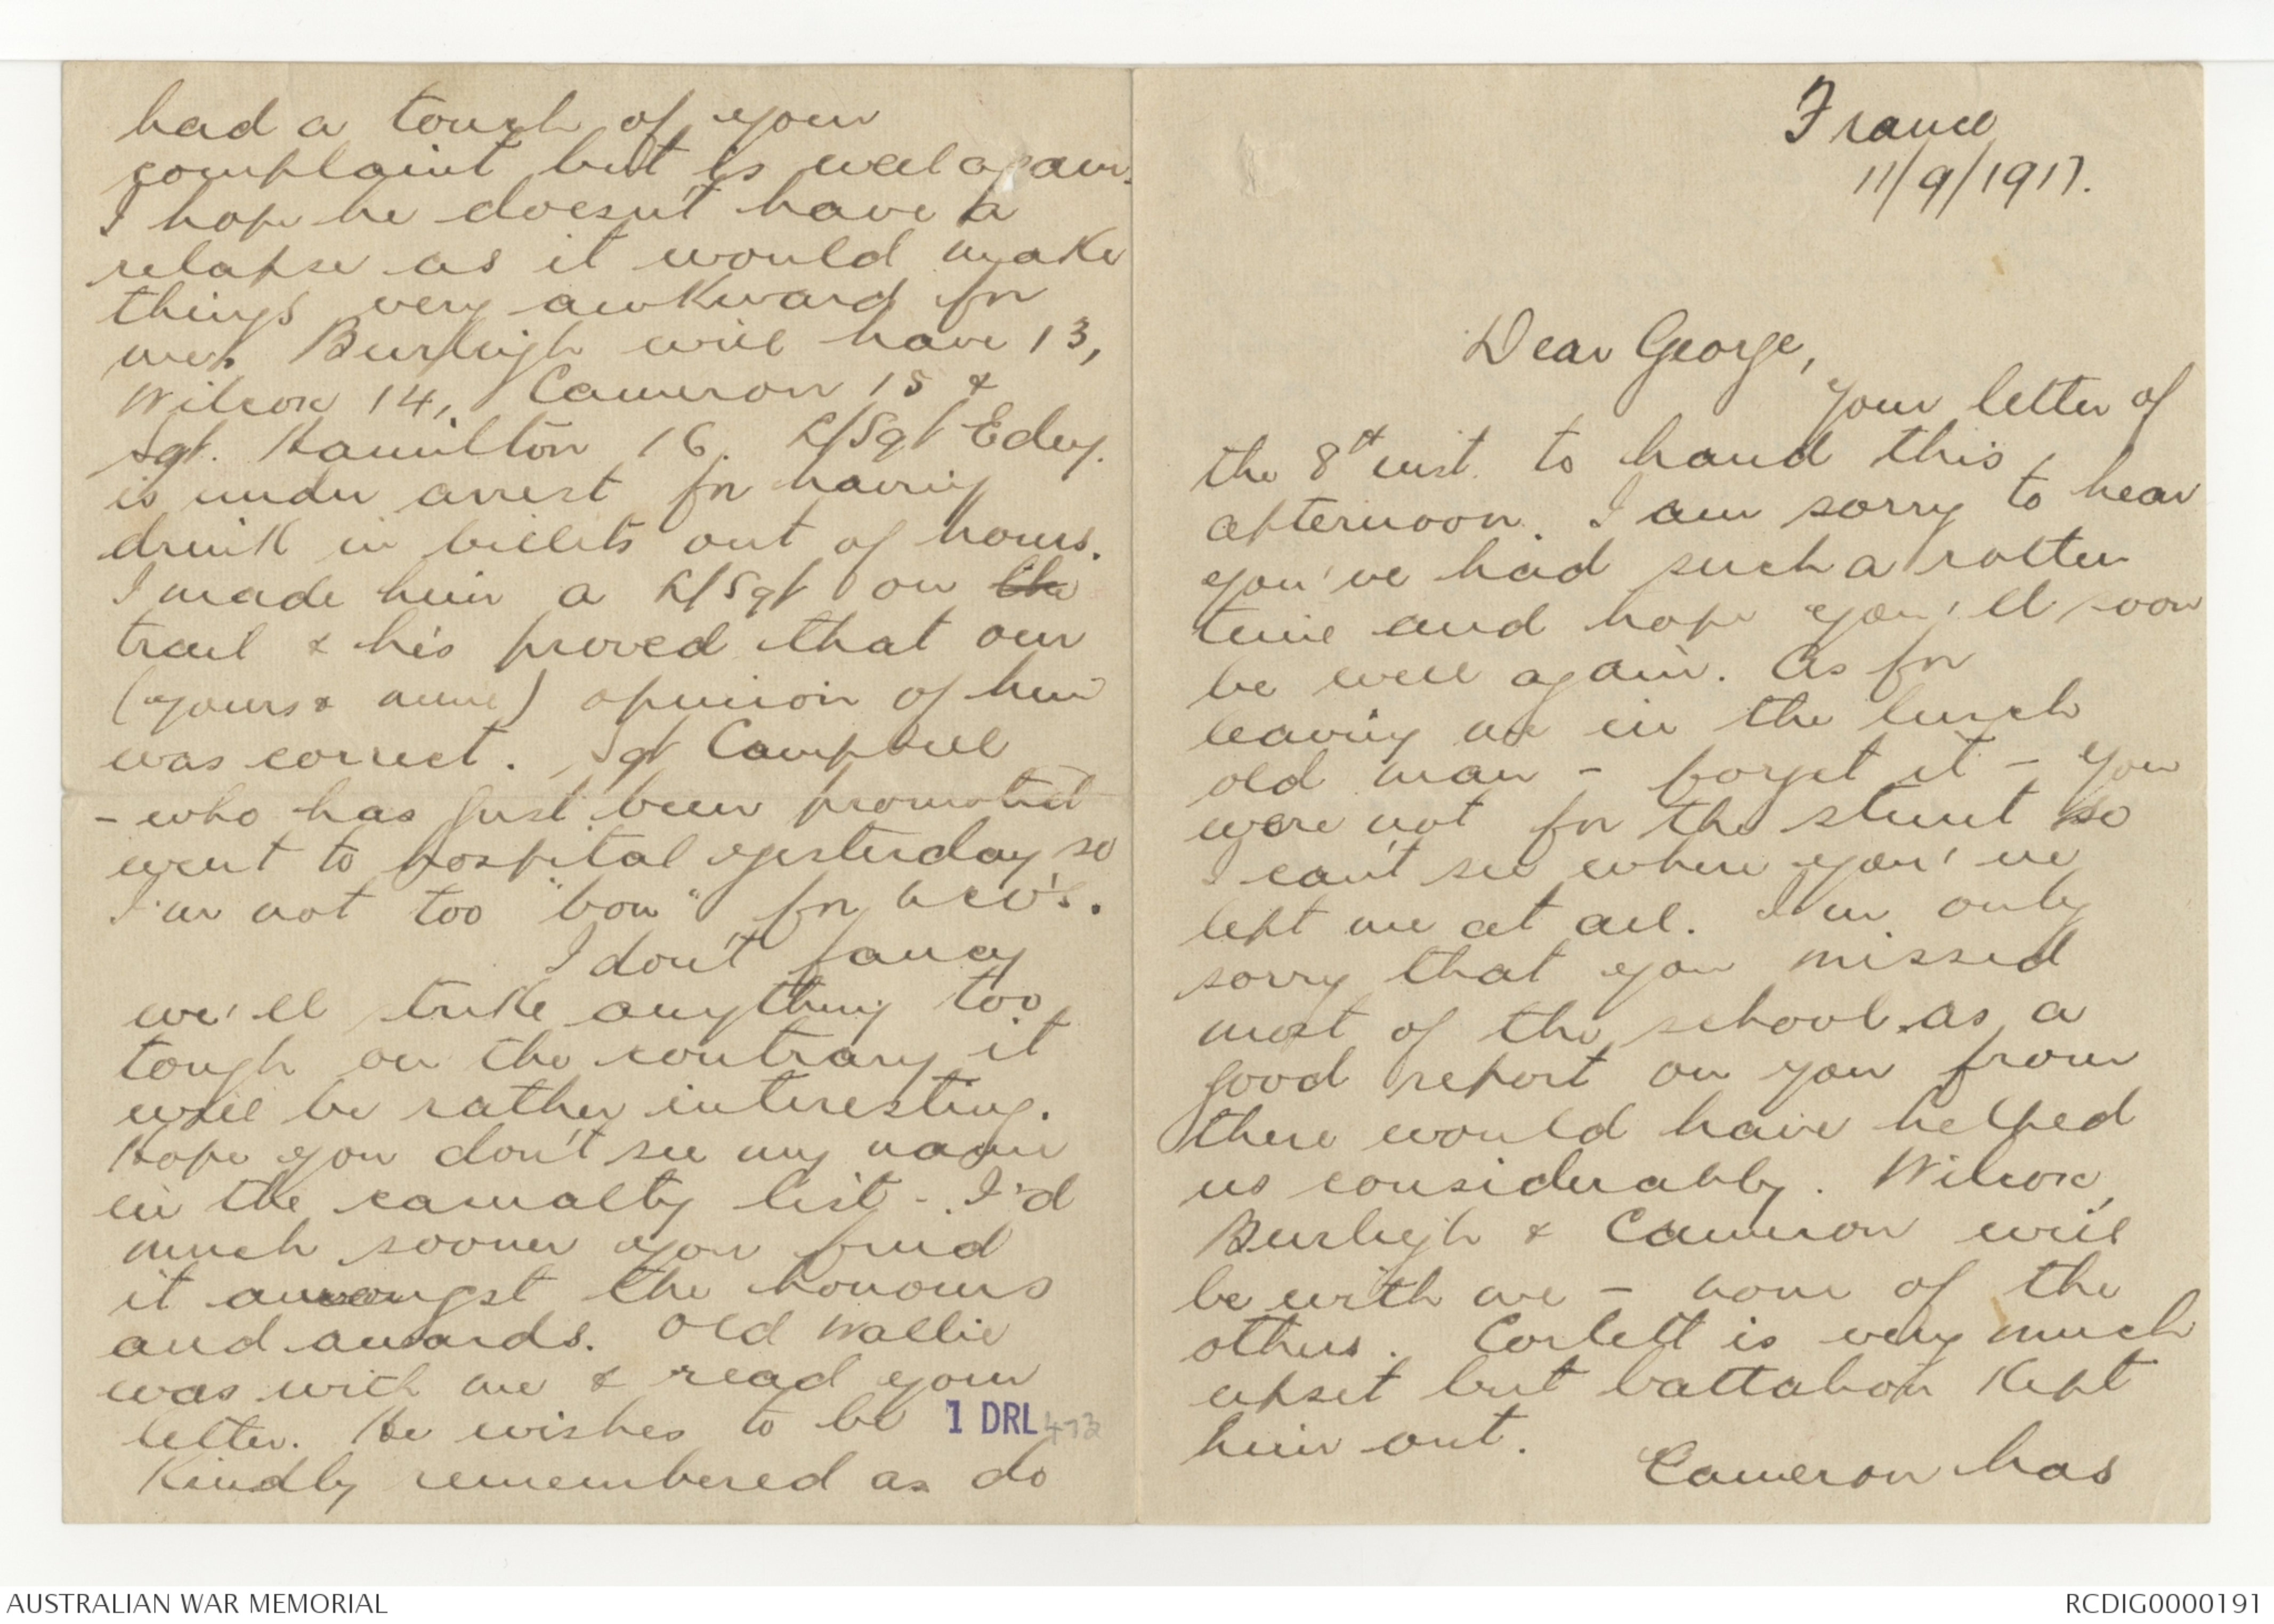 France
11/9/1917.
Dear George,
Your letter of
the 8th inst. to hand this
afternoon. I am sorry to hear
you've had such a rotten
time and hope you'll soon
be well again. As for
leaving me in the lurch
old man - forget it - you
were not for the stunt so
I can't see where you've
left me at all. I'm only
sorry that you missed
most of the school as a
good report on you from
there would have helped
us considerably. Wilcox,
Burleigh & Cameron will
be with me - none of the
others. Corlett is very much
upset but battalion kept
him out.
Cameron has
had a touch of your
complaint but is well again.
I hope he doesn't have a
relapse as it would make
things very awkward for
me. Burleigh will have 13,
Wilcox 14, Cameron 15 &
Sgt. Hamilton 16. L/Sgt Edey.
is under arrest for having
drink in billets out of hours.
I made him a L/Sgt on the
trail & he's proved that our
(yours & mine) opinion of him
was correct. Sgt Campbell
- who has just been promoted
went to hospital yesterday so
I'm not too "bon" for NCO's.
I don't fancy
we'll strike anything too
tough on the contrary it
will be rather interesting.
Hope you don't see my name
in the casualty list - I'd
much sooner you find
it amongst the honours
and awards. Old Wallie
was with me & read your
letter. He wishes to be
kindly remembered as do
1 DRL 473
AUSTRALIAN WAR MEMORIAL
RCDIG0000191